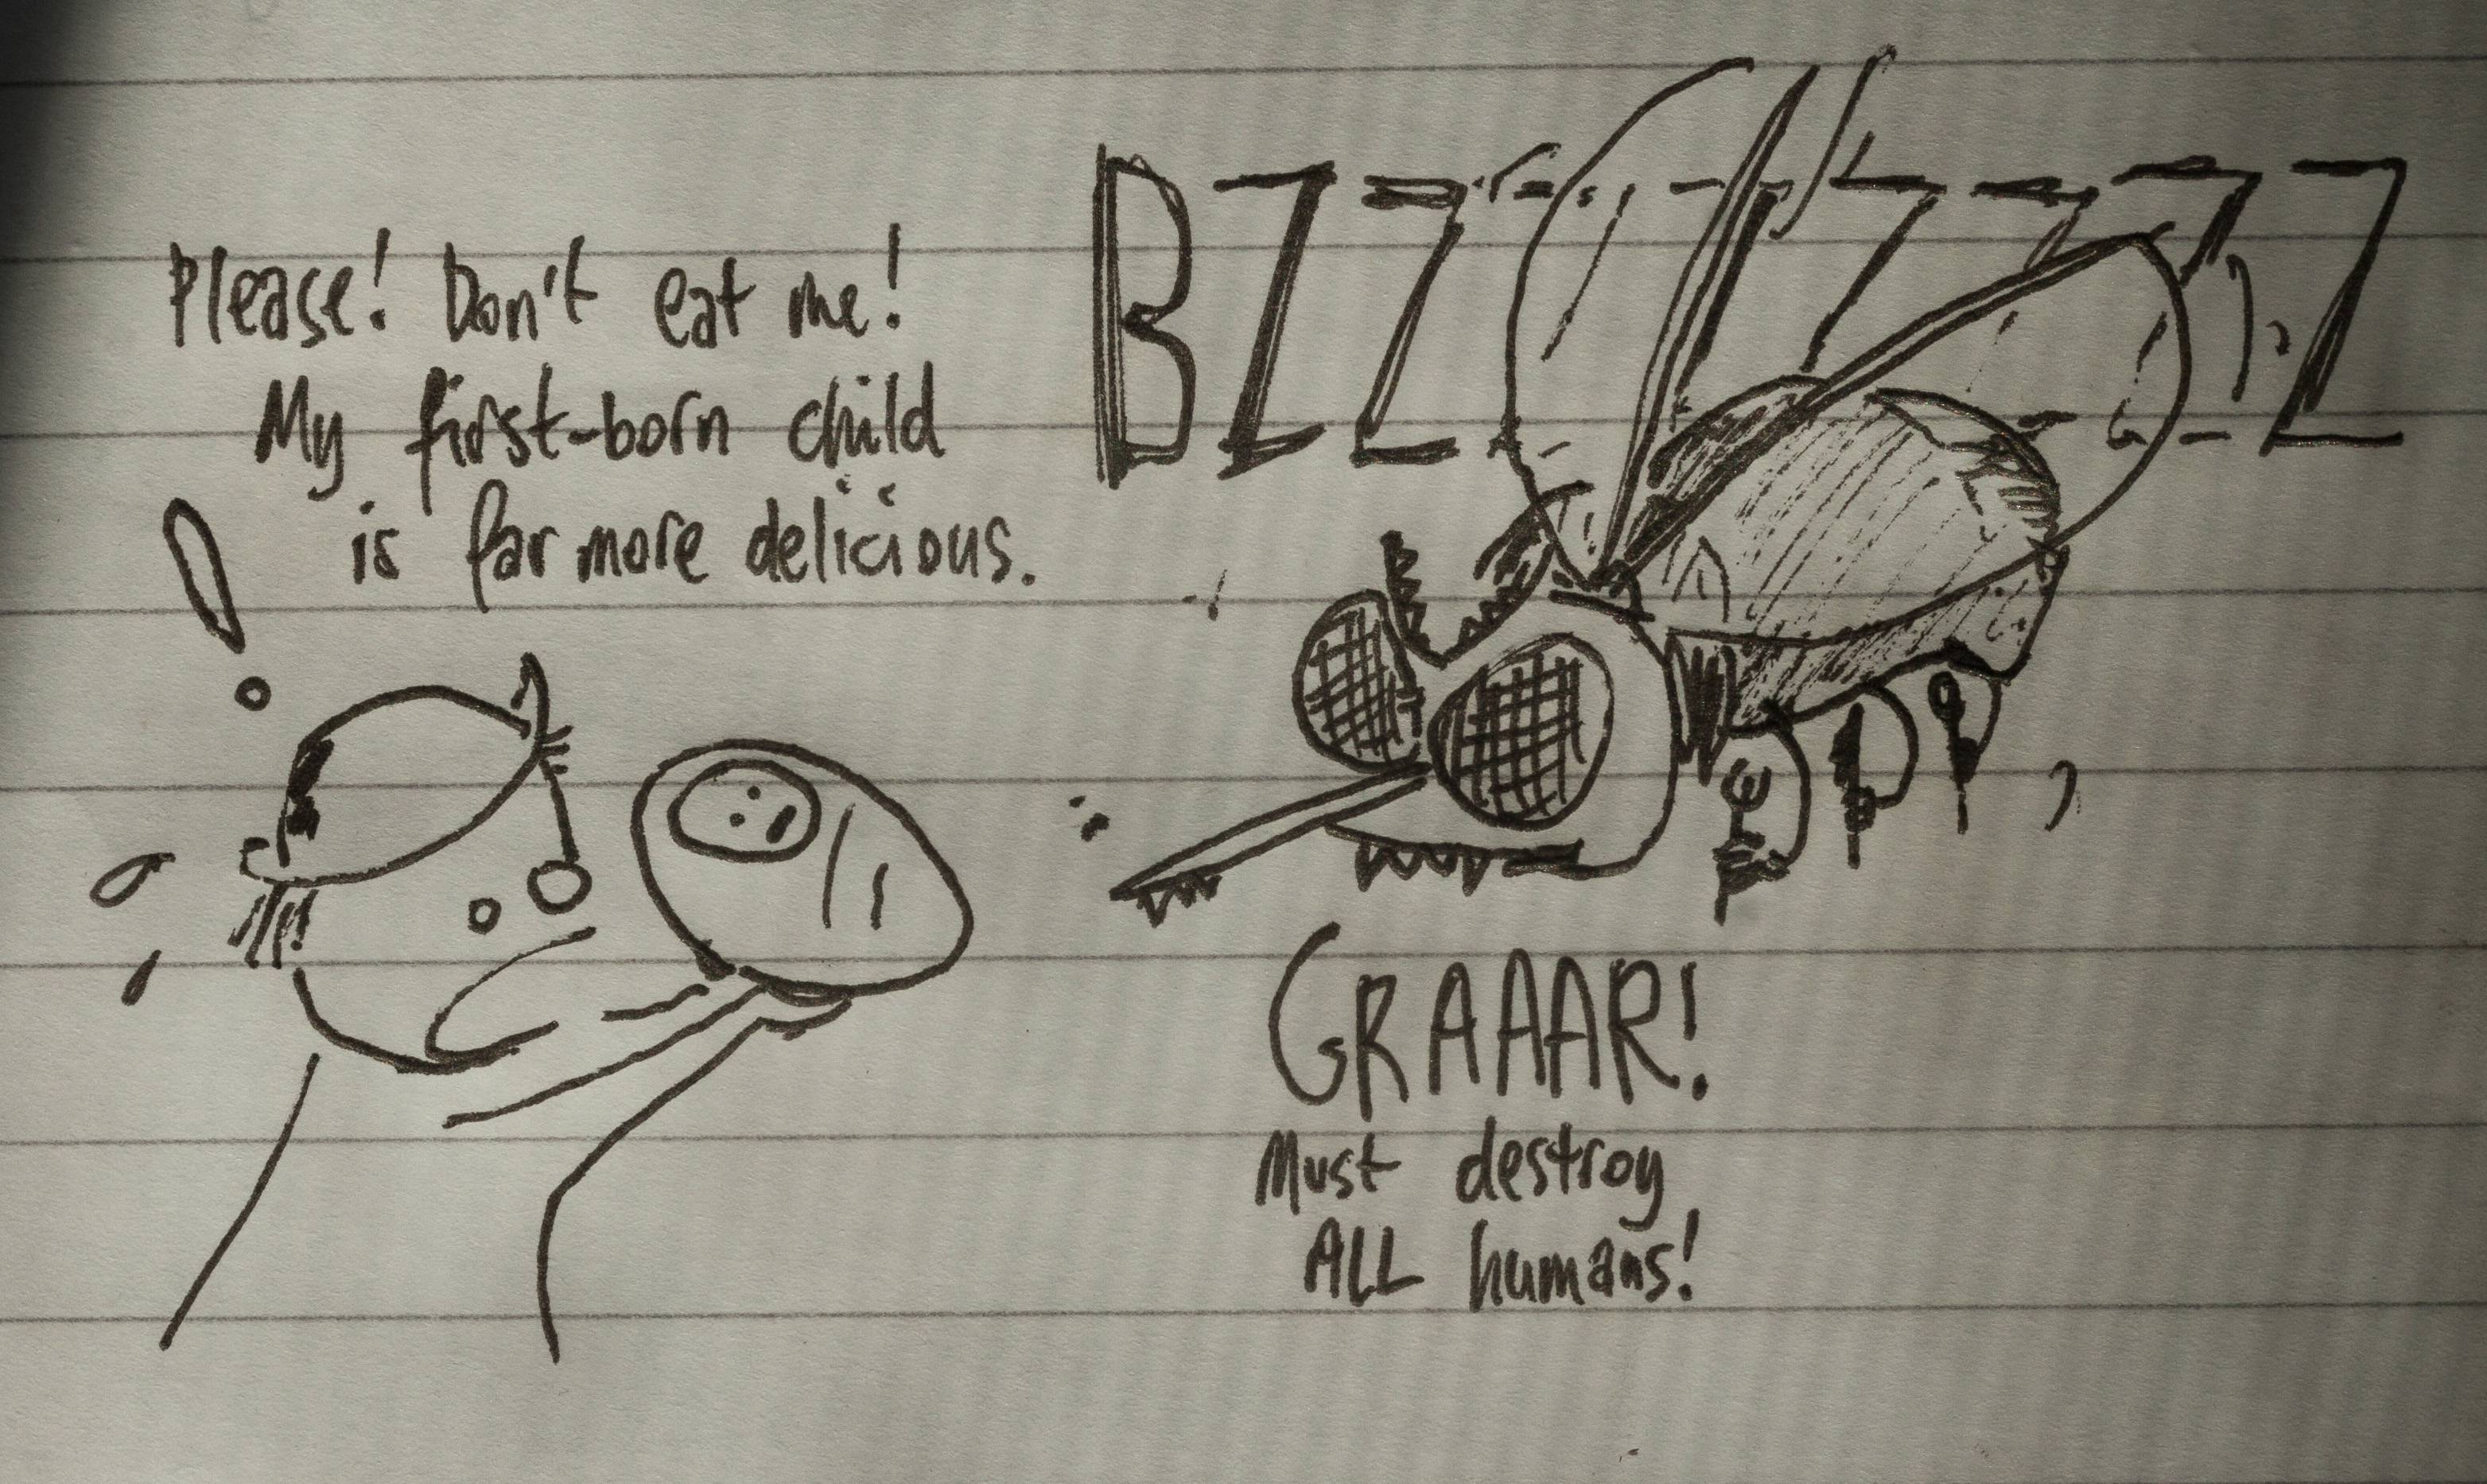 BZZZZZZZZ
Please! Don't eat me!
My first-born child
is far more delicious.
GRAAAR!
Must destroy
ALL humans!